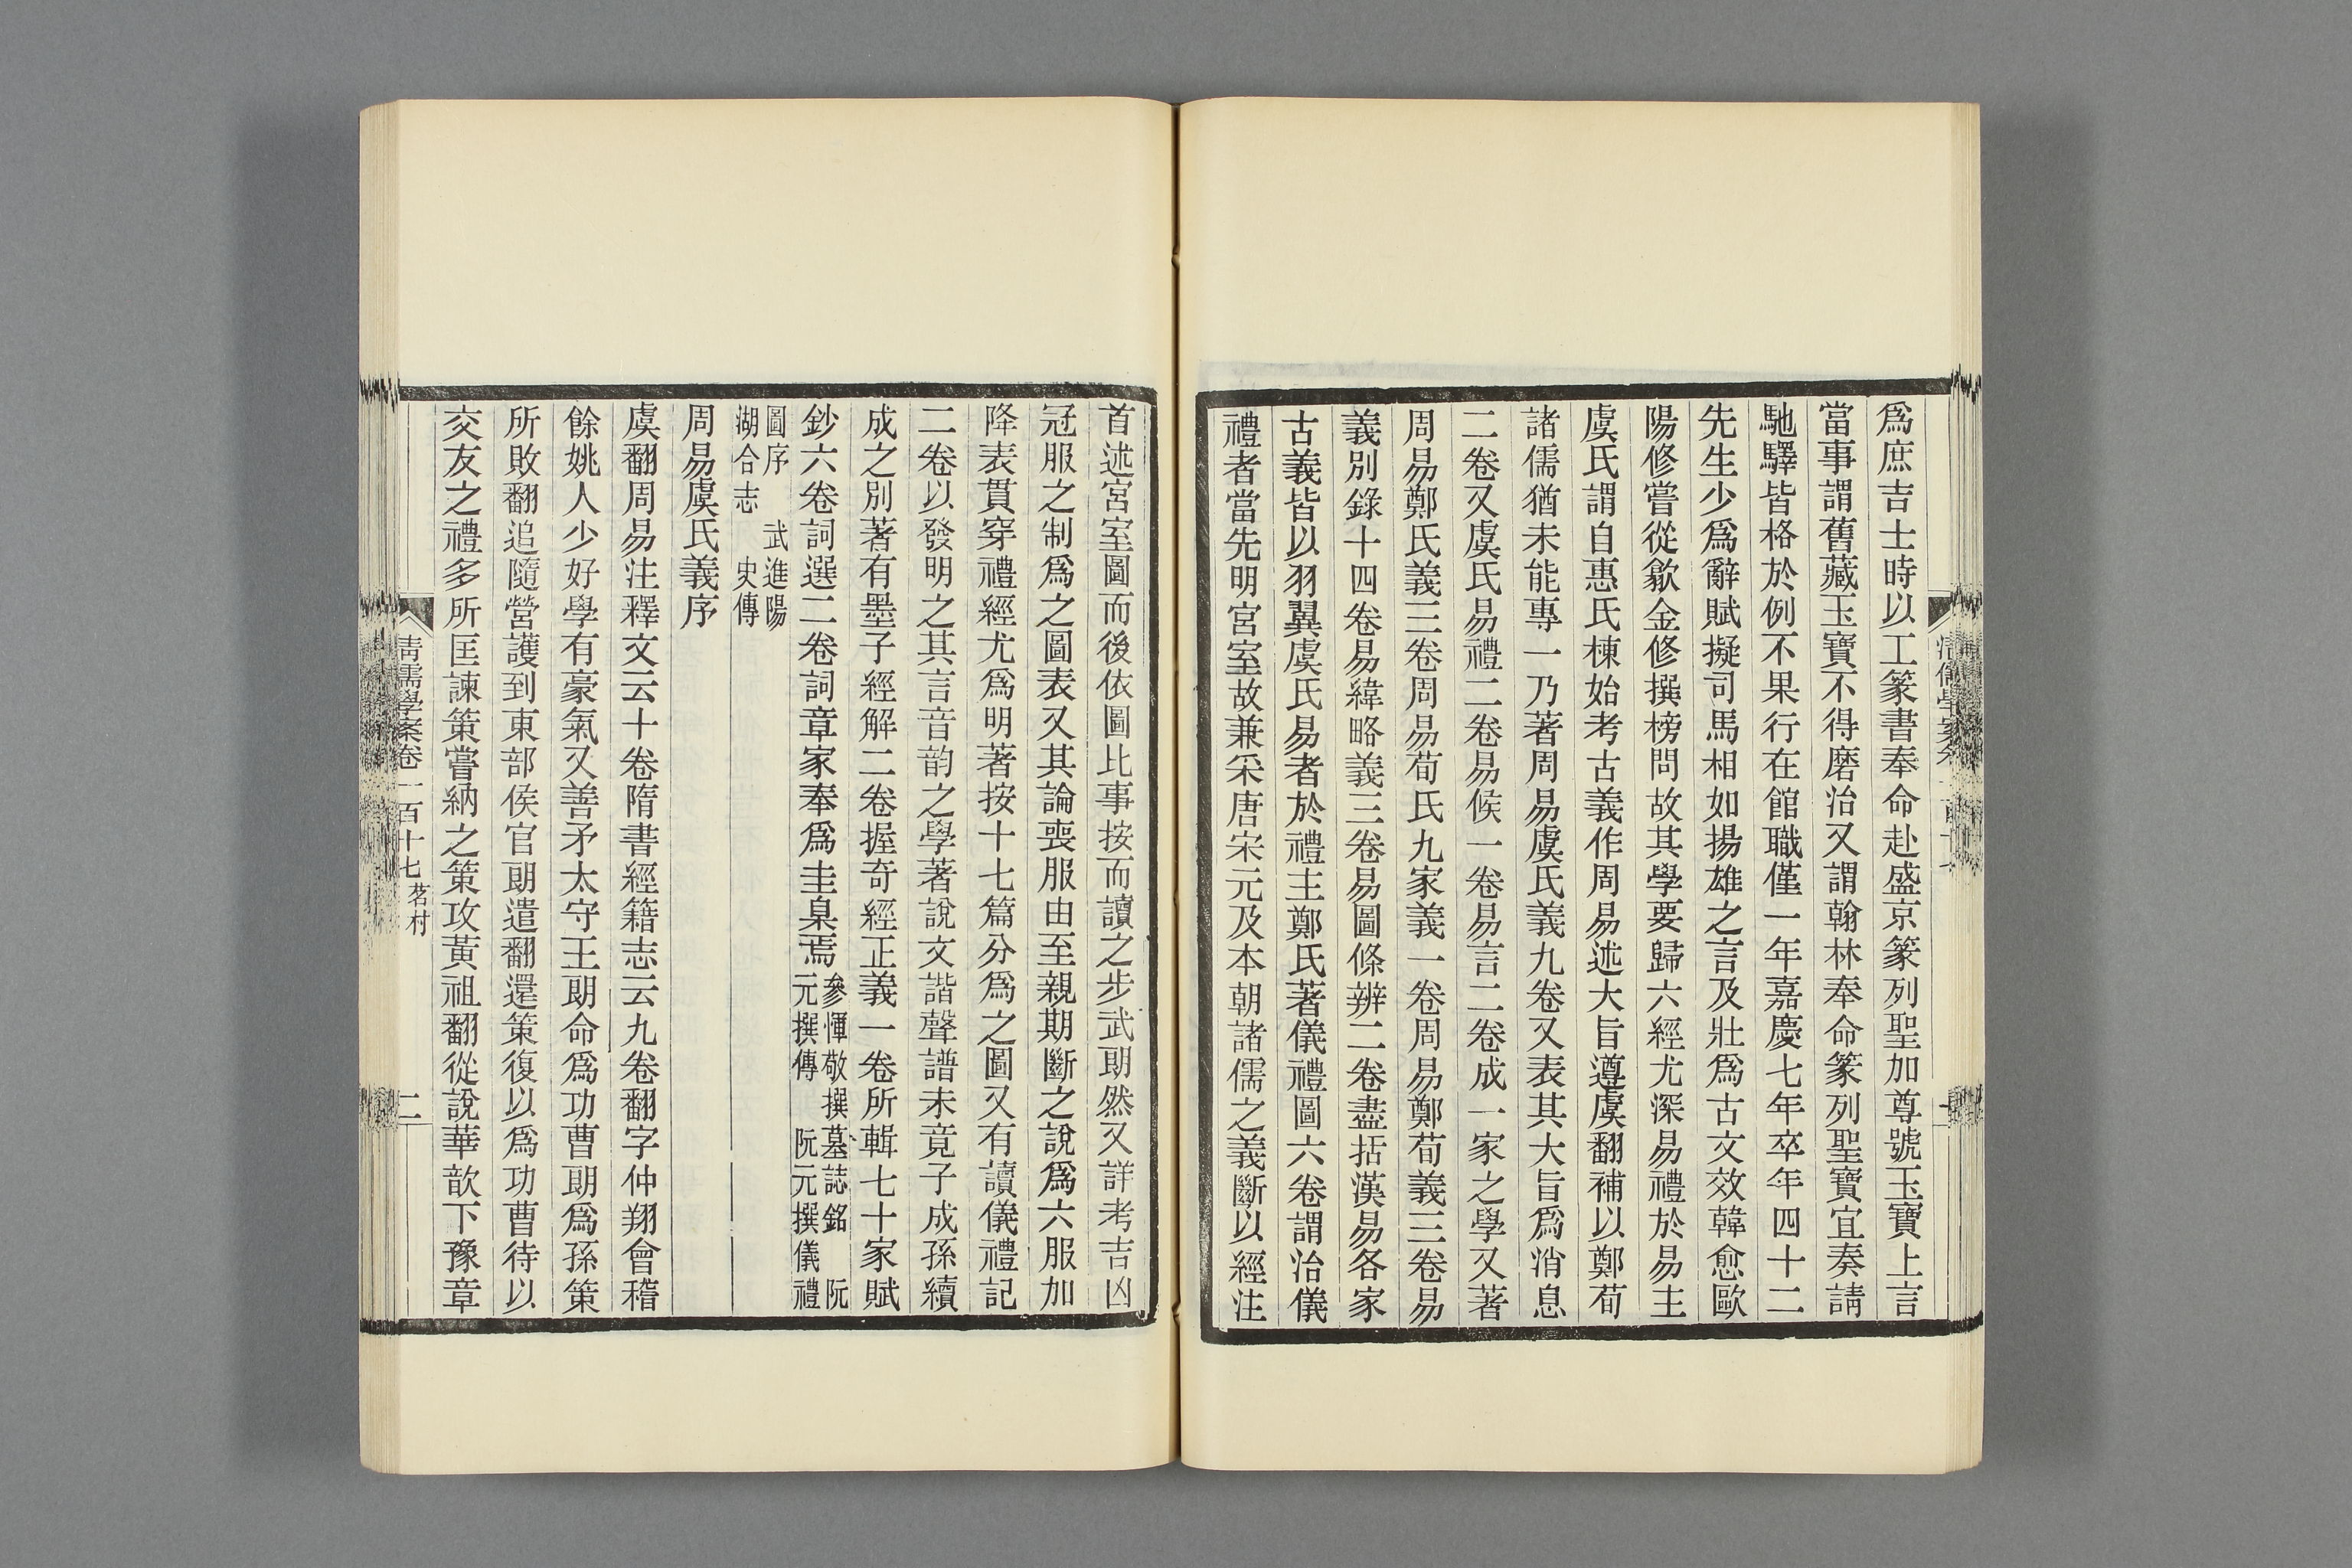 爲庶吉士時以工篆書奉命赴盛京篆列聖加尊號玉寶上言
當事謂舊藏玉寶不得磨治又謂翰林奉命篆列聖寶宜奏請
馳驛皆格於例不果行在館職僅一年嘉慶七年卒年四十二
先生少爲辭賦擬司馬相如揚雄之言及壯爲古文效韓愈歐
陽修嘗從歙金修撰榜問故其學要歸六經尤深易禮於易主
虞氏謂自惠氏棟始考古義作周易述大旨遵虞翻補以鄭荀
諸儒猶未能專一乃著周易虞氏義九卷又表其大旨爲消息
二卷又虞氏易禮二卷易候一卷易言二卷成一家之學又著
周易鄭氏義三卷周易荀氏九家義一卷周易鄭荀義三卷易
義別錄十四卷易緯略義三卷易圖條辨二卷盡括漢易各家
古義皆以羽翼虞氏易者於禮主鄭氏著儀禮圖六卷謂治儀
禮者當先明宮室故兼采唐宋元及本朝諸儒之義斷以經注
首述宮室圖而後依圖比事按而讀之步武朗然又詳考吉凶
冠服之制爲之圖表又其論喪服由至親期斷之說爲六服加
降表貫穿禮經尤爲明著按十七篇分爲之圖又有讀儀禮記
二卷以發明之其言音韵之學著說文諧聲譜未竟子成孫續
成之別著有墨子經解二卷握奇經正義一卷所輯七十家賦
鈔六卷詞選二卷詞章家奉爲圭臬焉參惲敬撰墓誌銘 阮
元撰傳 阮元撰儀禮
圖序 武進陽
湖合志 史傳
周易虞氏義序
虞翻周易注釋文云十卷隋書經籍志云九卷翻字仲翔會稽
餘姚人少好學有豪氣又善矛太守王朗命爲功曹朗爲孫策
所敗翻追隨營護到東部侯官朗遣翻還策復以爲功曹待以
交友之禮多所匡諫策嘗納之策攻黃祖翻從說華歆下豫章
清儒學案卷一百十七 茗村
二